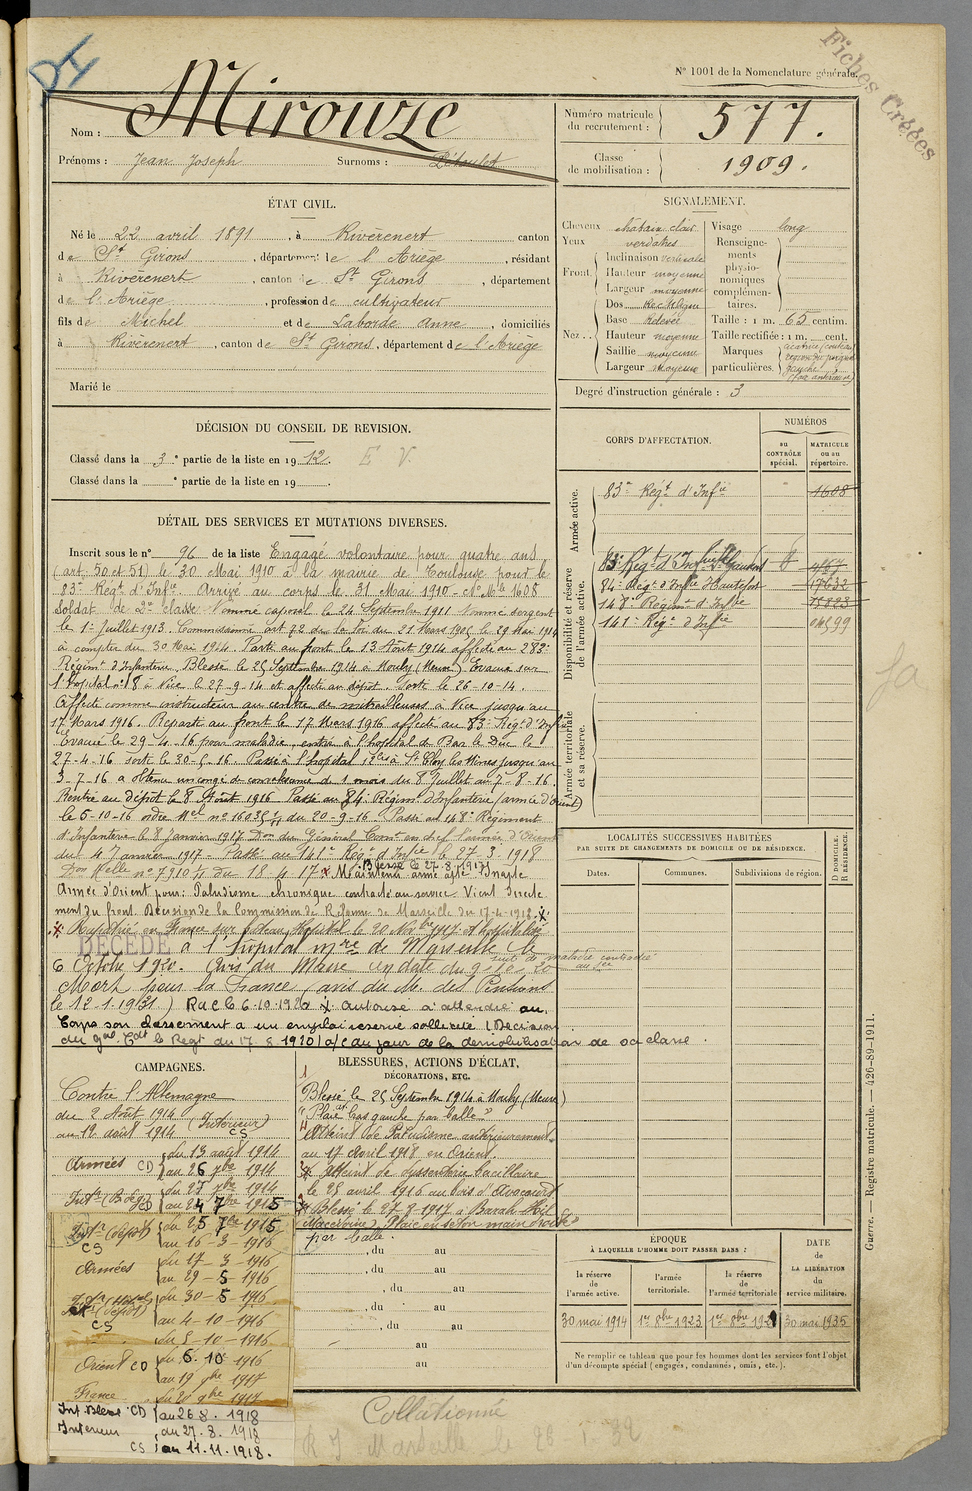 DI
Fiches Créées
N° 1001 de la Nomenclature générale.
Nom : Mirouze
Prénoms : Jean Joseph Surnoms :
Numéro matricule du recrutement : 577.
Classe de mobilisation : 1909.
ÉTAT CIVIL.
Né le 22 avril 1891, à Rivèrenert canton
de St Girons, département de l'Ariège, résidant
à Rivèrenert, canton de St Girons, département
de l'Ariège, profession de cultivateur
fils de Michel et de Laborde Anne, domiciliés
à Rivèrenert, canton de St Girons, département de l'Ariège
Marié le
SIGNALEMENT.
Cheveux châtain clair
Yeux verdâtres
Front. Inclinaison verticale
Hauteur moyenne
Largeur moyenne
Nez.. Dos rectiligne
Base relevée
Hauteur moyenne
Saillie moyenne
Largeur moyenne
Visage long
Renseignements physionomiques complémentaires.
Taille : 1 m. 65 centim.
Taille rectifiée : 1 m. cent.
Marques particulières.
gauche
(face antérieure)
Degré d'instruction générale : 3
DÉCISION DU CONSEIL DE REVISION.
Classé dans la 3e partie de la liste en 1912. E V.
Classé dans la e partie de la liste en 19 .
DÉTAIL DES SERVICES ET MUTATIONS DIVERSES.
Inscrit sous le n° 96 de la liste Engagé volontaire pour quatre ans
(art. 50 et 51) le 30 Mai 1910 à la mairie de Toulouse pour le
83e Regt d'Infie. Arrivé au corps le 31 Mai 1910 - No Mle 1608
Soldat de 2e classe Nommé caporal le 24 Septembre 1911 Nommé sergent
le 1er Juillet 1913. Commissionné art 72 de la loi du 21 Mars 1905 le 29 Mai 1914
à compter du 30 Mai 1914. Parti au front le 13 Août 1914 affecté au 283e
Régimt d'Infanterie. Blessé le 25 Septembre 1914 à Mouly (Meuse) Evacué sur
l'hôpital no 18 à Nice le 27-9-14 et affecté au dépôt. Sorti le 26-10-14.
Affecté comme instructeur au centre de mitrailleuses à Nice jusqu'au
17 Mars 1916. Reparti au front le 17 Mars 1916 affecté au 83e Régt d'Inf
Evacué le 29-4-16 pour maladie, entré à l'hôpital de Bar le Duc le
27-4-16 sorti le 30-5-16. Passé à l'hôpital St Eloy les Mines jusqu'au
3-7-16 a obtenu un congé de convalescence de 1 mois du 8 Juillet au 7-8-16
Rentré au dépôt le 8 Août 1916 Passé au 84e Régim. d'Infanterie (armée d'Orient)
le 5-10-16 ordre Mel no 16035 du 20-9-16. Passé au 148e Régiment
d'Infanterie le 8 Janvier 1917 Don du Général Comt en chef l'armée d'Orient
du 4 Janvier 1917 - Passé au 141e Régt d'Infie le 27-3-1918
Blessé le 27-8-1917
Don Melle no 7910 du 18 4 17 Maintenu armé apte
Armée d'Orient pour : Paludisme chronique contracté au service. Vient directe-
ment du front. Décision de la Commission de Réforme de Marseille du 17-4-1918.
Rapatrié en France sur bateau hôpital le 20 Novbre 1917 et hospitalisé
DÉCÉDÉ à l'hôpital mre de Marseille le
suite de maladie contractée au sce
6 Octobre 1920. Avis du Maire en date du 9-10-20
Mort pour la France (avis du M. des Pensions
le 12-1-1931) Rac le 6-10-1920 Autorisé à attendre au
Corps son classement à un emploi réservé sollicité (Décision
du gal Cdt le Regt du 17-8-1920) a/c du jour de la démobilisation de sa classe.
CORPS D'AFFECTATION.
NUMÉROS
au CONTRÔLE spécial.
MATRICULE ou au répertoire.
Armée active.
83e Regt d'Infie 1608
Disponibilité et réserve de l'armée active.
83e Regt d'Infterie St Gaudens
84e Regt d'Infie 17632
148e Régimt d'Infie 15823
141e Régt d'Infie 04599
Armée territoriale et sa réserve.
LOCALITÉS SUCCESSIVES HABITÉES
PAR SUITE DE CHANGEMENTS DE DOMICILE OU DE RÉSIDENCE.
D DOMICILE. R RÉSIDENCE.
Dates. Communes. Subdivisions de région.
CAMPAGNES.
Contre l'Allemagne
du 2 Août 1914 (Intérieur)
au 12 août 1914 CS
Armées CD du 13 août 1914
au 26 7bre 1914
du 27 7bre 1914
au 24 7bre 1915
Intr (dépôt) du 25 7bre 1915
CS au 16-3-1916
Armées du 17-3-1916
au 29-5-1916
du 30-5-1916
(dépôt) CS au 4-10-1916
du 5-10-1916
Orient CD du 6-10-1916
au 19 9bre 1917
France du 20 9bre 1917
Int. Blessé CD au 26 8. 1918
Intérieur du 27. 8. 1918
CS au 11.11.1918.
BLESSURES, ACTIONS D'ÉCLAT,
DÉCORATIONS, ETC.
Blessé le 25 Septembre 1914 à Mouly (Meuse)
"Plaie bras gauche par balle"
Atteint de Paludisme antérieurement
au 17 Avril 1918 en Orient.
Atteint de dyssenterie bacillaire
le 25 avril 1916 au bois d'Avocourt
Blessé le 27-8-1917 à Barah
Macédoine). Plaie en séton main droite
par balle.
, du au
, du au
, du au
, du au
au
au
ÉPOQUE
À LAQUELLE L'HOMME DOIT PASSER DANS :
la réserve de l'armée active.
l'armée territoriale.
la réserve de l'armée territoriale
DATE de LA LIBÉRATION du service militaire.
30 mai 1914
1er 8bre 1923
30 mai 1935
Ne remplir ce tableau que pour les hommes dont les services font l'objet
d'un décompte spécial (engagés, condamnés, omis, etc.).
Guerre. — Registre matricule. — 426-89-1911.
Collationné
R J Marseille le 26-1-32